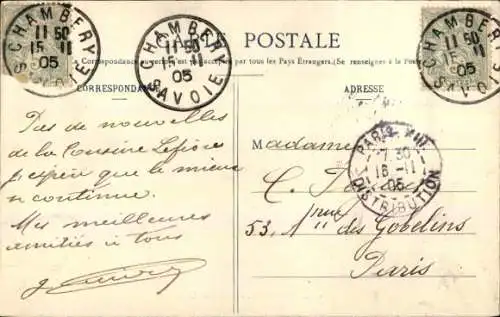 CHAMBERY
11 50
15 11
05
SAVOIE
CHAMBERY
11 50
15 11
05
SAVOIE
CHAMBERY
11 50
15 11
05
SAVOIE
CARTE POSTALE
Correspondance au verso n'est pas acceptée par tous les Pays Étrangers. (Se renseigner à la Poste)
CORRESPONDANCE
ADRESSE
Pas de nouvelles
de la Cousine
j'espère que le mieux
continue.
Mes meilleures
amitiés à tous
Madame
C.
53, des Gobelins
Paris
PARIS XIII
7 30
16 11
05
DISTRIBUTION